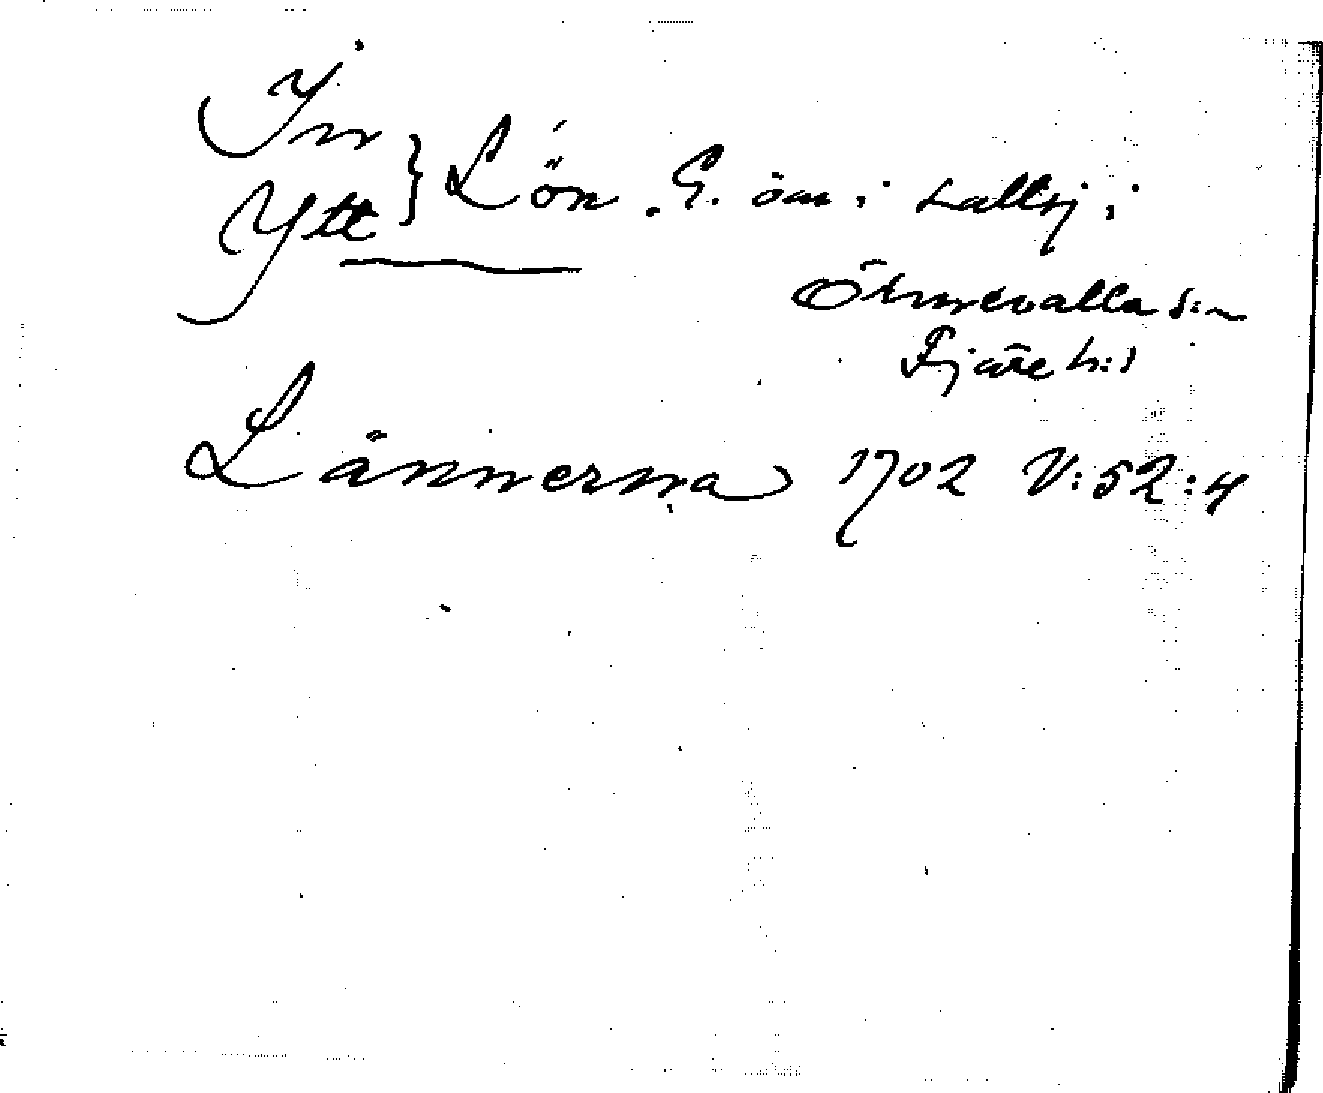 In
Ytt } Lön . G. öar i Lallsj i
Ölmevalla s:n
Fjäre h:d
Lännerna 1702 V:52:4